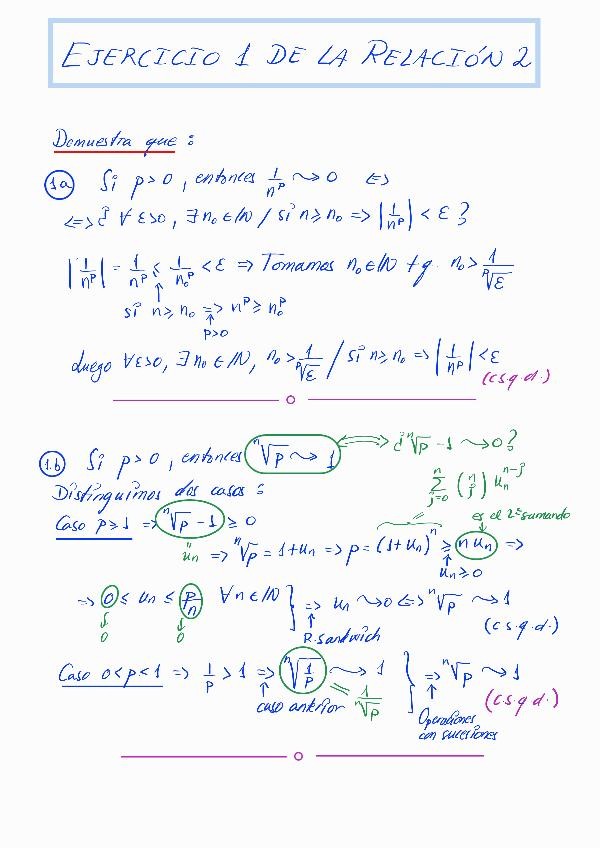 EJERCICIO 1 DE LA RELACIÓN 2
Demuestra que:
1a Si p>0, entonces 1/n^p ⇝ 0 <=>
<=> ¿ ∀ ε>0, ∃ n₀ ∈ ℕ / si n ≥ n₀ => |1/n^p| < ε ?
|1/n^p| = 1/n^p ≤ 1/n₀^p < ε => Tomamos n₀ ∈ ℕ t.q. n₀ > 1/ᵖ√ε
↑
si n ≥ n₀ => n^p ≥ n₀^p
↑
p>0
Luego ∀ ε>0, ∃ n₀ ∈ ℕ, n₀ > 1/ᵖ√ε / si n ≥ n₀ => |1/n^p| < ε
(c.s.q.d.)
1.b Si p>0, entonces ⁿ√p ⇝ 1 <=> ¿ ⁿ√p - 1 ⇝ 0 ?
Distinguimos dos casos:
∑_{j=0}^{n} (n j) u_n^{n-j}
es el 2º sumando
Caso p ≥ 1 => ⁿ√p - 1 ≥ 0
" u_n => ⁿ√p = 1 + u_n => p = (1 + u_n)^n ≥ n u_n =>
↑
u_n ≥ 0
=> 0 ≤ u_n ≤ p/n ∀ n ∈ ℕ } => u_n ⇝ 0 <=> ⁿ√p ⇝ 1
↓ 0 ↓ 0 ↑ R. sandwich (c.s.q.d.)
Caso 0<p<1 => 1/p > 1 => ⁿ√(1/p) ⇝ 1 } => ⁿ√p ⇝ 1
↑ caso anterior = 1/ⁿ√p ↑ (c.s.q.d.)
Operaciones
con sucesiones